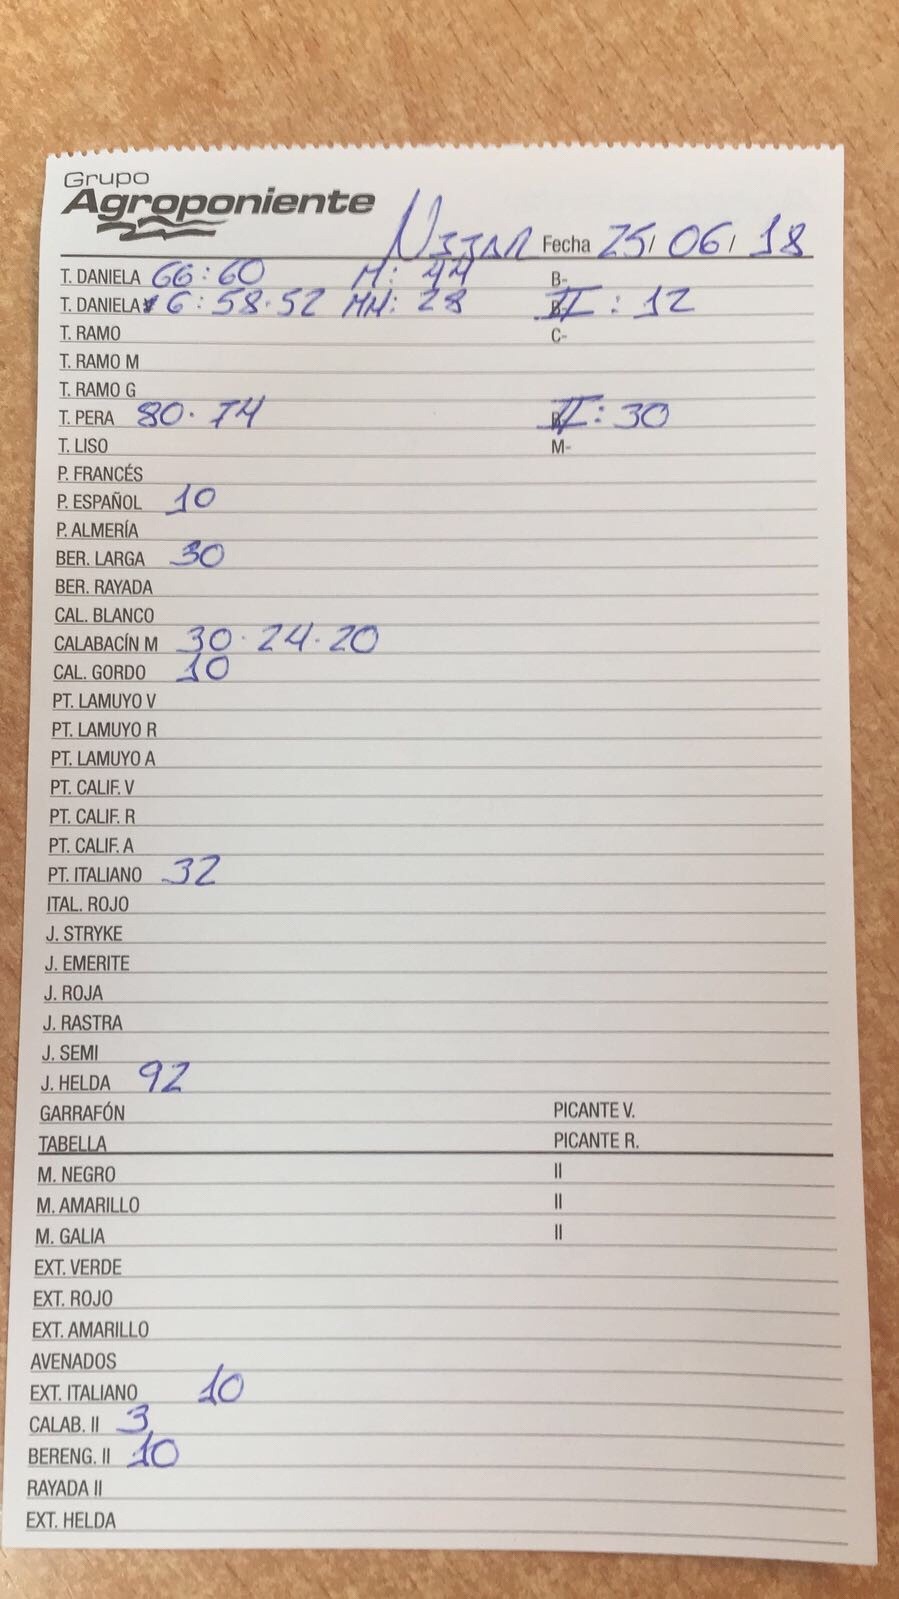 Grupo
Agroponiente
NIJAR Fecha 25/ 06/ 18
T. DANIELA 66:60 M: 44 B-
T. DANIELA G: 58·52 MM: 28 II: 12
T. RAMO C-
T. RAMO M
T. RAMO G
T. PERA 80·74 II: 30
T. LISO M-
P. FRANCÉS
P. ESPAÑOL 10
P. ALMERÍA
BER. LARGA 30
BER. RAYADA
CAL. BLANCO
CALABACÍN M 30·24·20
CAL. GORDO 10
PT. LAMUYO V
PT. LAMUYO R
PT. LAMUYO A
PT. CALIF. V
PT. CALIF. R
PT. CALIF. A
PT. ITALIANO 32
ITAL. ROJO
J. STRYKE
J. EMERITE
J. ROJA
J. RASTRA
J. SEMI
J. HELDA 92
GARRAFÓN PICANTE V.
TABELLA PICANTE R.
M. NEGRO II
M. AMARILLO II
M. GALIA II
EXT. VERDE
EXT. ROJO
EXT. AMARILLO
AVENADOS
EXT. ITALIANO 10
CALAB. II 3
BERENG. II 10
RAYADA II
EXT. HELDA